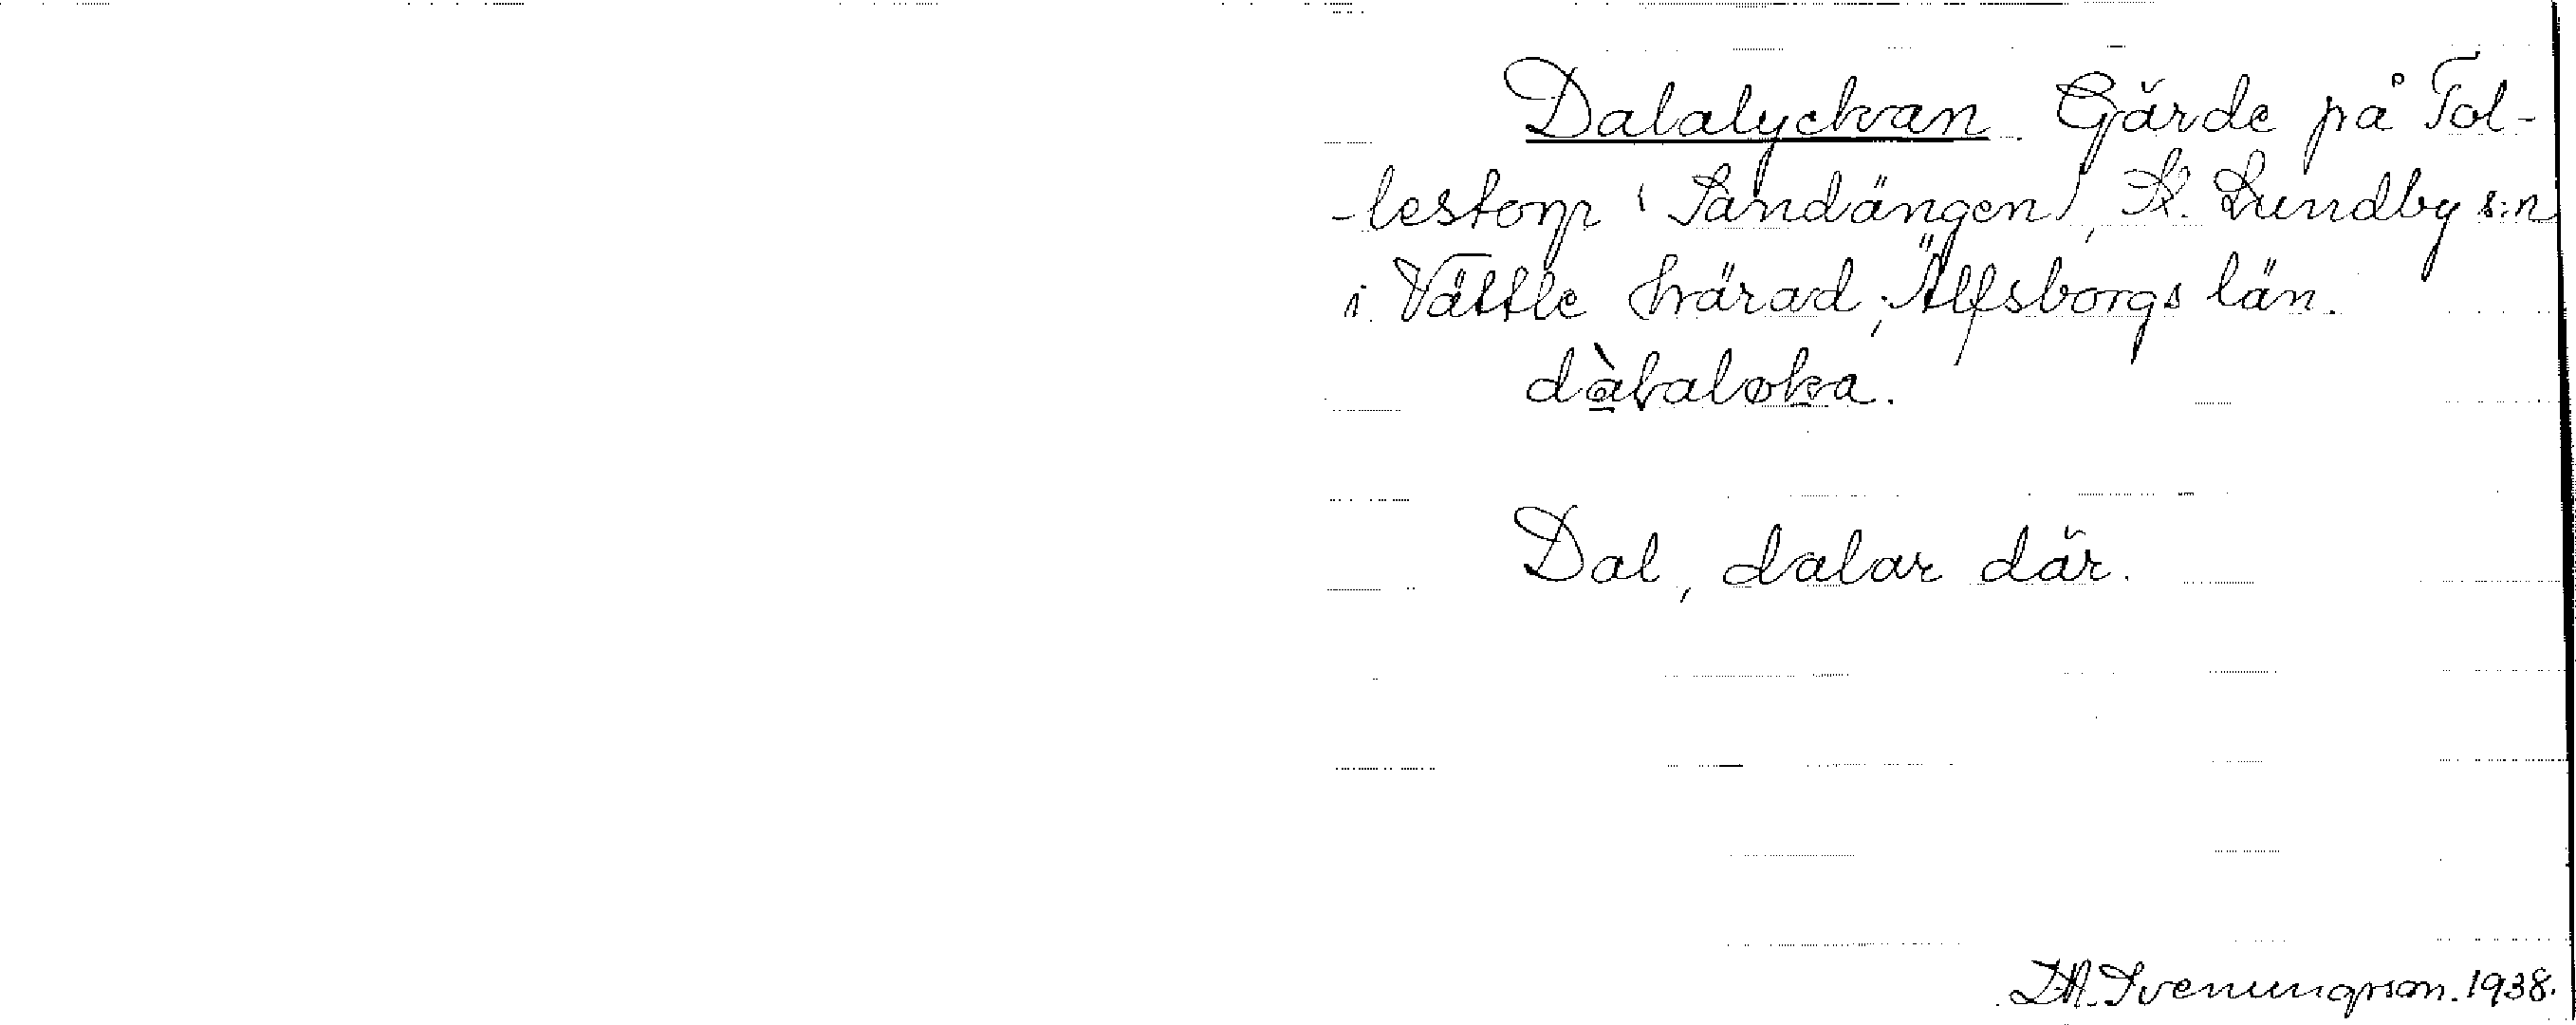 Dalalyckan. Gärde på Tol-
-lestorp (Sandängen), St. Lundby s:n
i Vättle härad, Älfsborgs län.
dàlaloka.
Dal, dalar där.
D.A. Sveningsson. 1938.